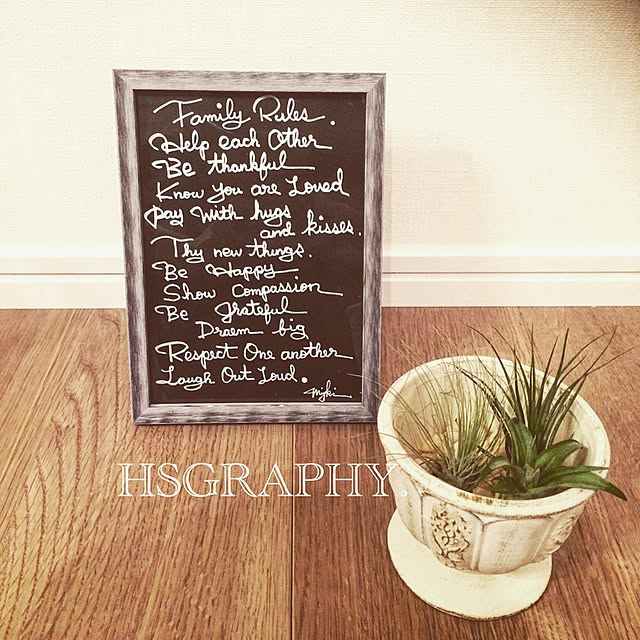 Family Rules.
Help each Other
Be thankful
Know you are Loved
Pay With hugs
and kisses.
Thy new things.
Be Happy
Show Compassion
Be grateful
Draem big
Respect One another
Laugh Out Loud.
HSGRAPHY.